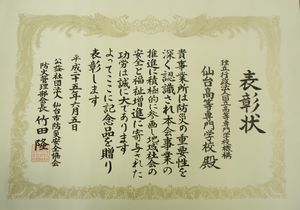 表彰状
独立行政法人国立高等専門学校機構
仙台高等専門学校 殿
貴事業所は防災の重要性を
深く認識され本会事業の
推進に積極的に参画し地域社会の
安全と福祉増進に寄与された
功労は誠に大であります
よってここに記念品を贈り
表彰します
平成二十五年六月五日
公益社団法人 仙台市防災安全協会
防火管理部会長 竹田 隆